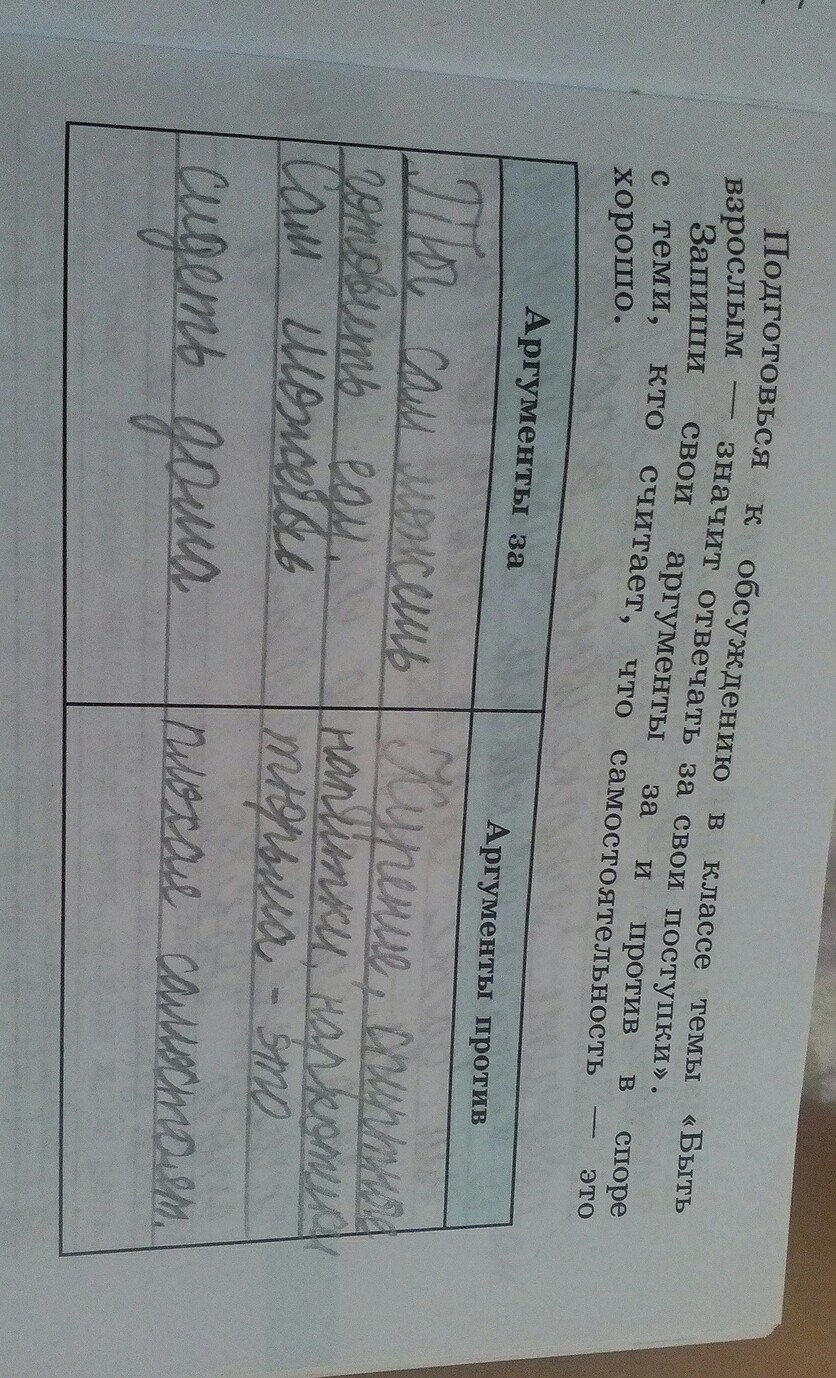 Подготовься к обсуждению в классе темы «Быть
взрослым — значит отвечать за свои поступки».
Запиши свои аргументы за и против в споре
с теми, кто считает, что самостоятельность — это
хорошо.
Аргументы за
Аргументы против
Ты сам можешь
готовить еду.
Сам можешь
сидеть дома
Курение, спиртные
напитки, наркотики
тюрьма - это
плохая самостоят.